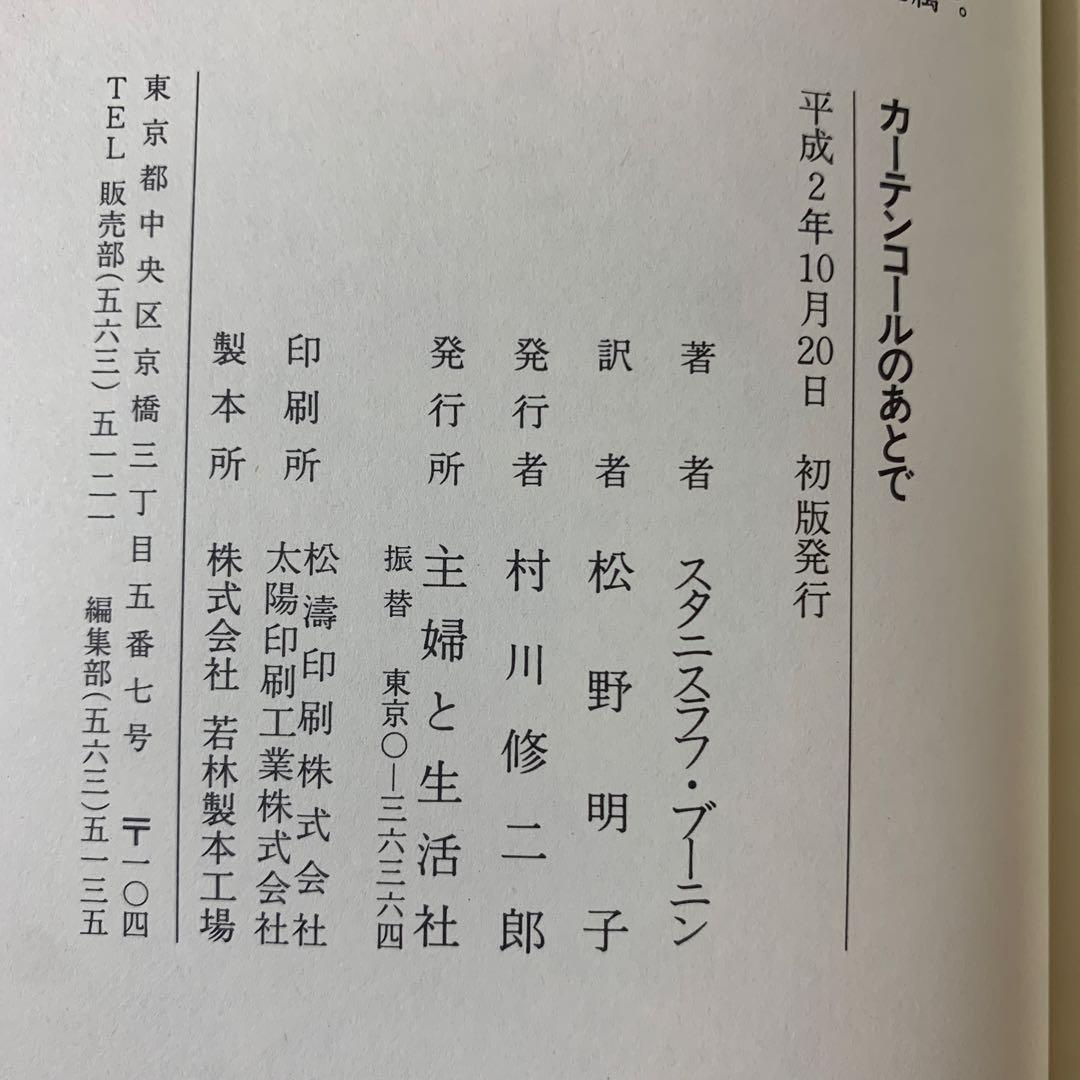 カーテンコールのあとで
平成2年10月20日 初版発行
著者 スタニスラフ・ブーニン
訳者 松野明子
発行者 村川修二郎
発行所 主婦と生活社
振替 東京〇―三六三六四
印刷所 松濤印刷株式会社
太陽印刷工業株式会社
製本所 株式会社 若林製本工場
東京都中央区京橋三丁目五番七号 〒一〇四
TEL 販売部(五六三)五一二一 編集部(五六三)五一三五